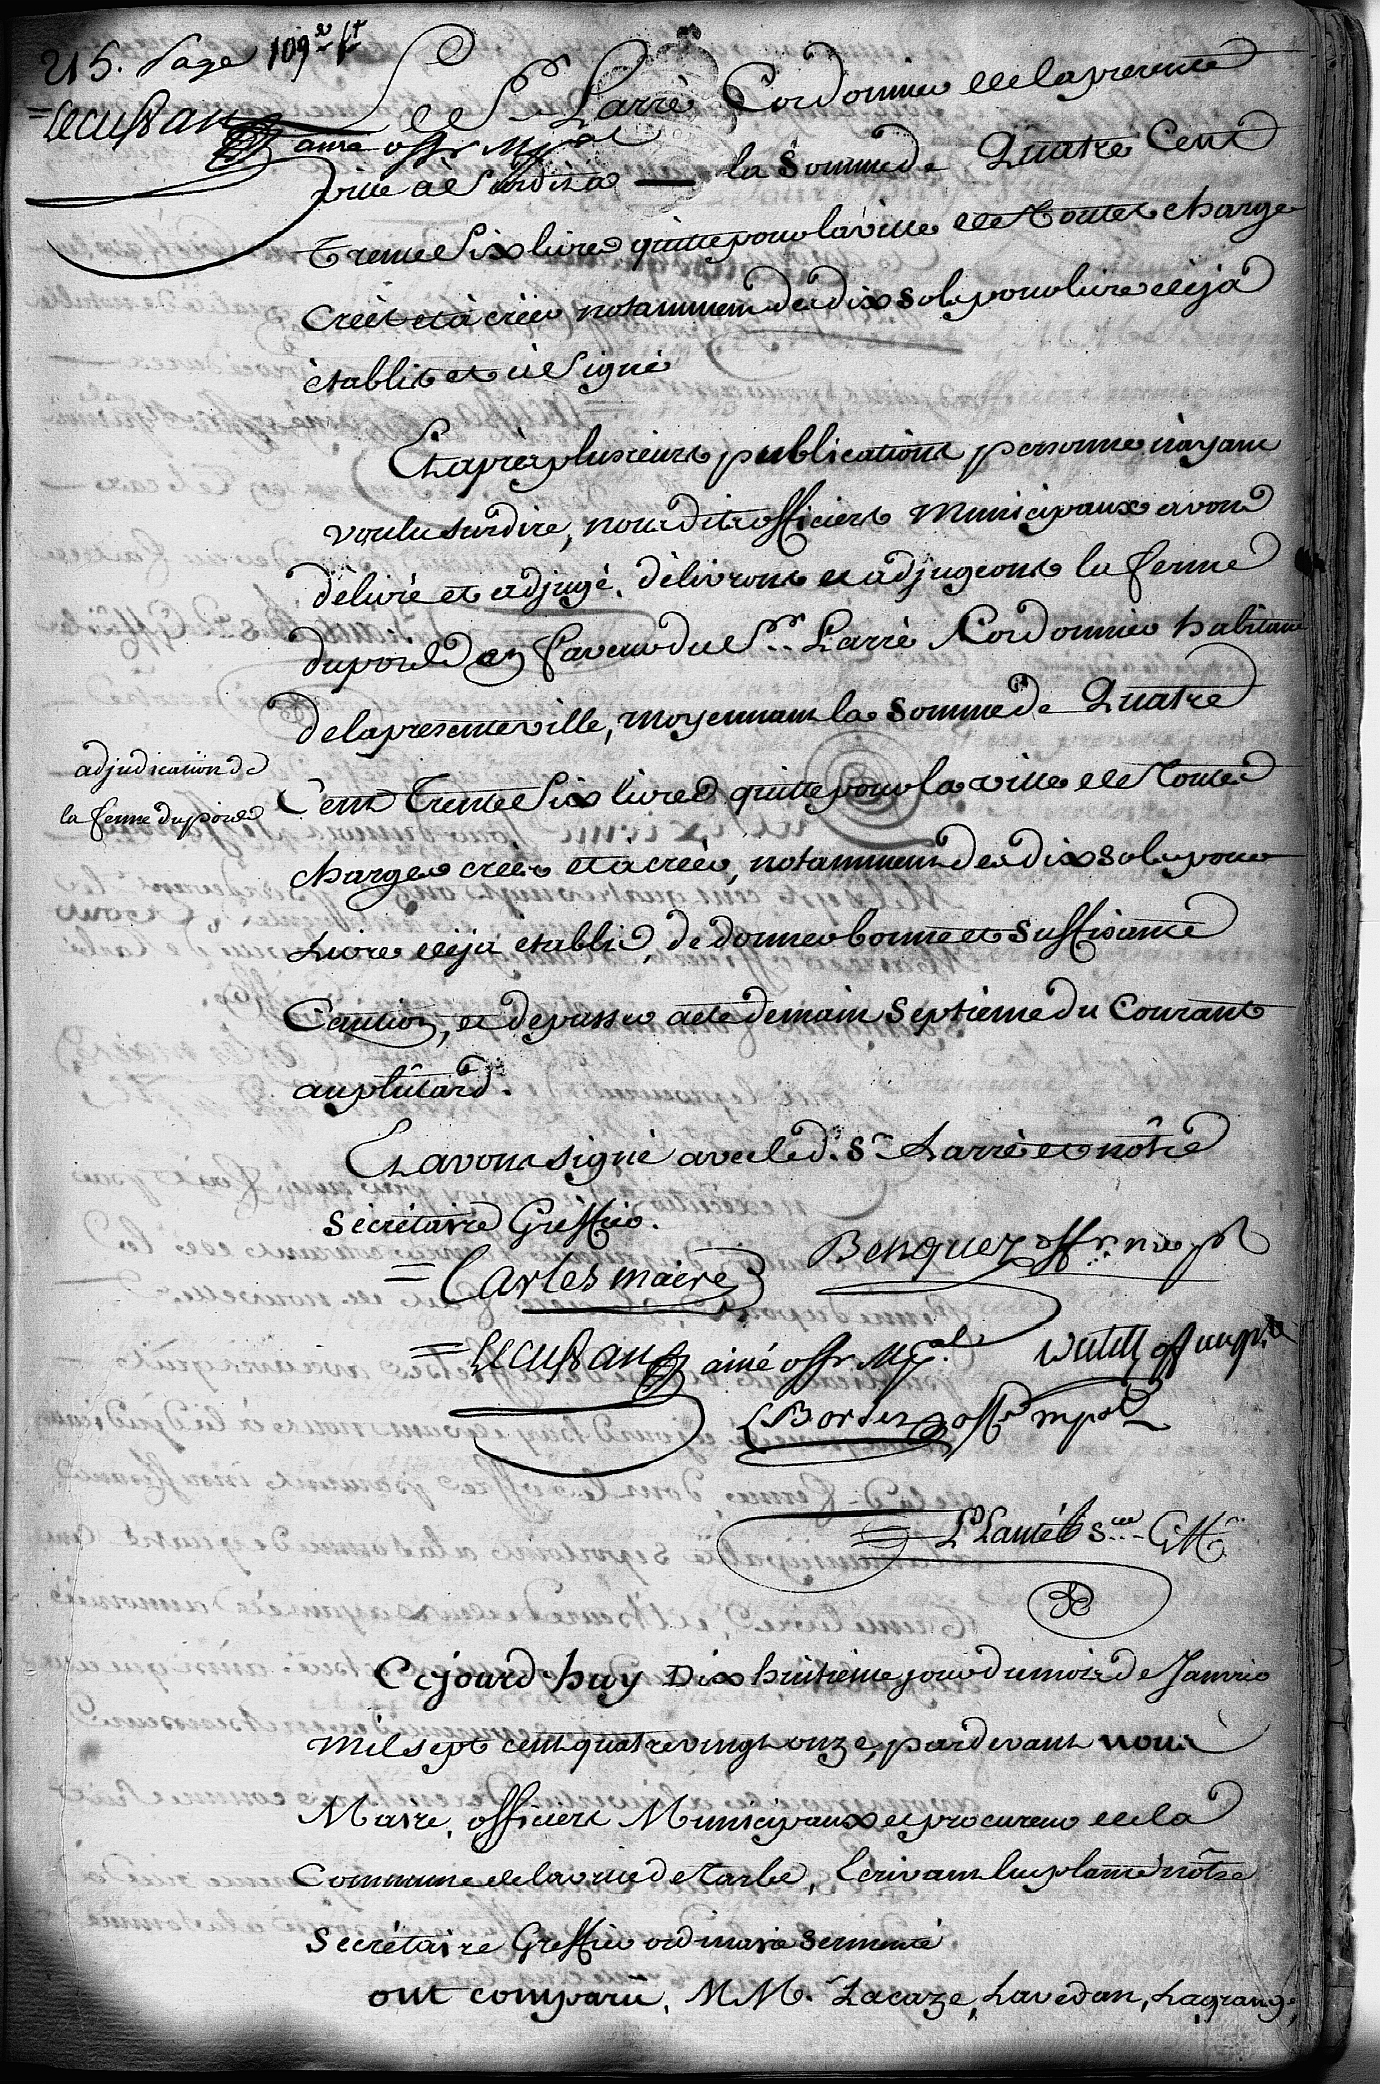 215. Page 109e. ft
Le Sr. Larré Cordonnier de la presente
= Lecussan ainé offr. Mpal
ville a Surdit a la Somme de Quatre Cent
Trente Six livres quitte pour la ville de Toutes charges
créés et à créer notamment des dix sols pour livre déja
établis et a Signé
Et après plusieurs publications personne n'ayant
voulu surdire, nous dits officiers Municipaux avons
délivré et adjugé, délivrons et adjugeons la ferme
du poids en faveur du Sr. Larré Cordonnier habitant
de la presente ville, moyennant la Somme de Quatre
adjudication de
la ferme du poids
Cent Trente Six livres quitte pour la ville de Toutes
charges créés et à créer, notamment des dix sols pour
Livre déja établis, de donner bonne et Suffisante
Caution, et de passer acte demain Septième du Courant
au plûtard.
Et avons signé avec led. Sr. Larré et nôtre
Sécrétaire Greffier.
= Carles maire
Benquez offr. mupl
= Lecussan ainé offr Mpal.
offr mupal
Bordes offr mpal
= L. Lamé Sre Gffr
Cejourd'huy Dix huitième jour du mois de Janvier
mil sept cent quatre vingt onze, pardevant nous
Maire, officiers Municipaux et procureur de la
Commune de la ville de Tarbe, Ecrivant Luc Lamé nôtre
Sécrétaire Greffier ordinaire Sermenté
ont comparû, MM. Lacaze, Lavedan, Lagrange,